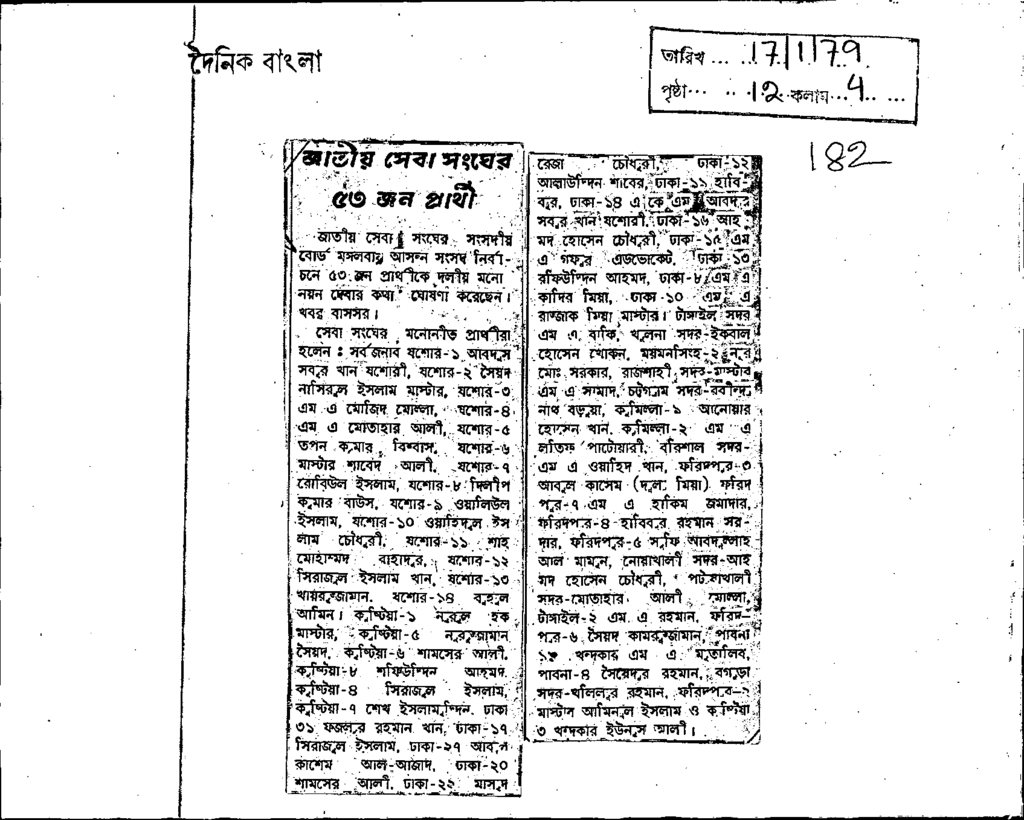 দৈনিক বাংলা
তারিখ ... 17/1/79
পৃষ্ঠা... 12 কলাম...4
182
জাতীয় সেবা সংঘের
৫৩ জন প্রার্থী
জাতীয় সেবা সংঘের সংসদীয়
বোর্ড মঙ্গলবার আসন্ন সংসদ নির্বা-
চনে ৫৩ জন প্রার্থীকে দলীয় মনো
নয়ন দেবার কথা ঘোষণা করেছেন।
খবর বাসসর।
সেবা সংঘের মনোনীত প্রার্থীরা
হলেন : সর্বজনাব যশোর-১ আবদুস
সবুর খান যশোরী, যশোর-২ সৈয়দ
নাসিরুল ইসলাম মাস্টার, যশোর-৩
এম এ মোজিদ মোল্লা, যশোর-৪
এম এ মোতাহার আলী, যশোর-৫
তপন কুমার বিশ্বাস, যশোর-৬
মাস্টার শাবেদ আলী, যশোর-৭
রোবিউল ইসলাম, যশোর-৮ দিলীপ
কুমার বাউস, যশোর-৯ ওয়ালিউল
ইসলাম, যশোর-১০ ওয়াহিদুল ইস
লাম চৌধুরী, যশোর-১১ শাহ
মোহাম্মদ বাহাদুর, যশোর-১২
সিরাজুল ইসলাম খান, যশোর-১৩
খায়রুজ্জামান, যশোর-১৪ রুহুল
আমিন। কুষ্টিয়া-১ নূরুল হক
মাস্টার, কুষ্টিয়া-৫ নূরুজ্জামান
সৈয়দ, কুষ্টিয়া-৬ শামসের আলী,
কুষ্টিয়া-৮ শফিউদ্দিন আহমদ,
কুষ্টিয়া-৪ সিরাজুল ইসলাম,
কুষ্টিয়া-৭ শেখ ইসলামুদ্দিন, ঢাকা
৩১ ফজলুর রহমান খান, ঢাকা-১৭
সিরাজুল ইসলাম, ঢাকা-২৭ আবুল
কাশেম আল-আজাদ, ঢাকা-২০
শামসের আলী, ঢাকা-২২ মাসুদ
রেজা চৌধুরী, ঢাকা-১২
আল্লাউদ্দিন শাবের, ঢাকা-১১ হাবি-
বুর, ঢাকা-১৪ এ কে এম আবদুর
সবুর খান যশোরী, ঢাকা-১৬ আহ
মদ হোসেন চৌধুরী, ঢাকা-১৫ এম
এ গফুর এডভোকেট, ঢাকা-১৩
রফিউদ্দিন আহমদ, ঢাকা-৮ এম এ
কাদির মিয়া, ঢাকা-১০ এম এ
রাজ্জাক মিয়া মাস্টার। টাঙ্গাইল সদর
এম এ বাকি, খুলনা সদর-ইকবাল
হোসেন খোকন, ময়মনসিংহ-২ নূর
মোঃ সরকার, রাজশাহী সদর-মাস্টার
এম এ সামাদ, চট্টগ্রাম সদর-রবীন্দ্র
নাথ বড়ুয়া, কুমিল্লা-১ আনোয়ার
হোসেন খান, কুমিল্লা-২ এম এ
লতিফ পাটোয়ারী, বরিশাল সদর-
এম এ ওয়াহিদ খান, ফরিদপুর-৩
আবুল কাসেম (দুলু মিয়া) ফরিদ
পুর-৭ এম এ হাকিম জমাদার,
ফরিদপুর-৪ হাবিবুর রহমান সর-
দার, ফরিদপুর-৫ সুফি আবদুল্লাহ
আল মামুন, নোয়াখালী সদর-আহ
মদ হোসেন চৌধুরী, পটুয়াখালী
সদর-মোতাহার আলী মোল্লা,
টাঙ্গাইল-২ এম এ রহমান, ফরিদ-
পুর-৬ সৈয়দ কামরুজ্জামান, পাবনা
খন্দকার এম এ মুতালিব,
পাবনা-৪ সৈয়েদুর রহমান, বগুড়া
সদর-খলিলুর রহমান, ফরিদপুর-২
মাস্টার আমিনুল ইসলাম ও কুষ্টিয়া
৩ খন্দকার ইউনুস আলী।